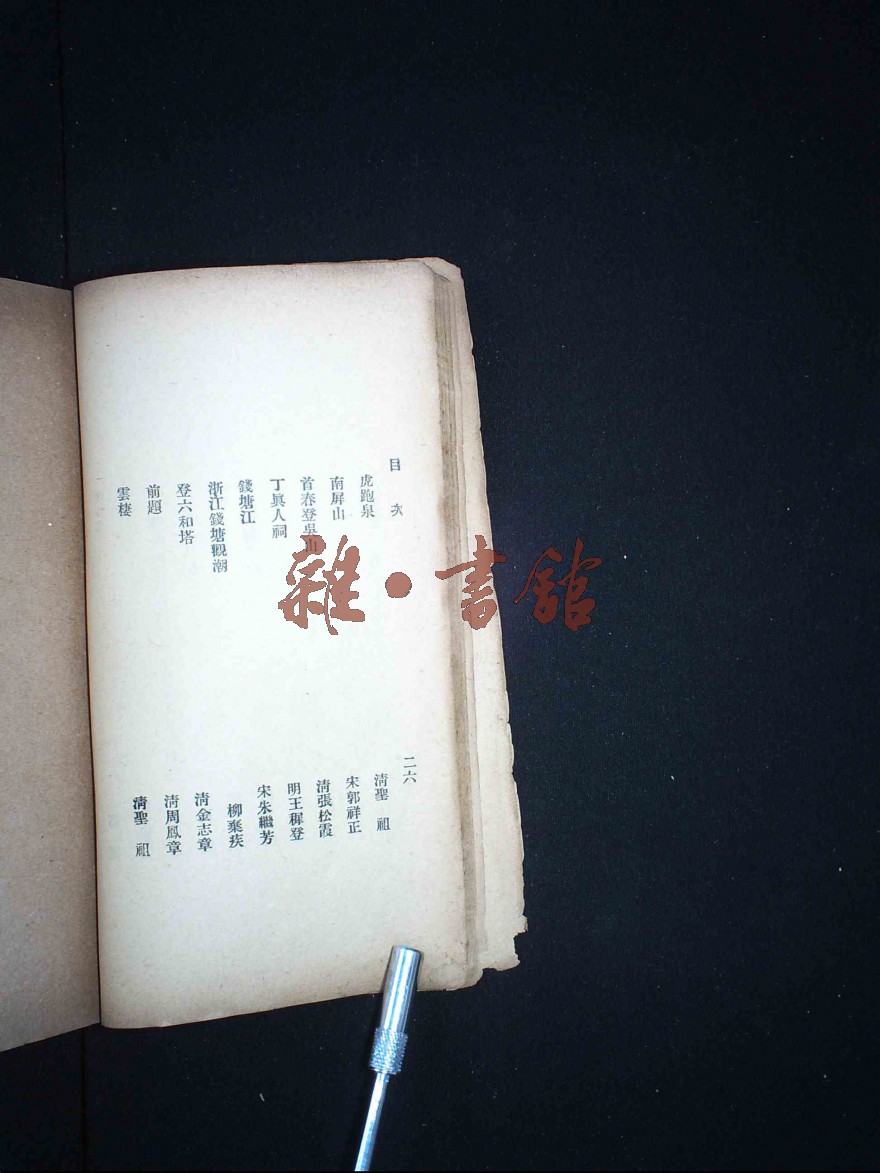 目次　二六
虎跑泉　清聖祖
南屏山　宋郭祥正
首春登吳山　清張松霞
丁眞人祠　明王穉登
錢塘江　宋朱繼芳
浙江錢塘觀潮　柳棄疾
登六和塔　清金志章
前題　清周鳳章
雲棲　清聖祖
雜·書館